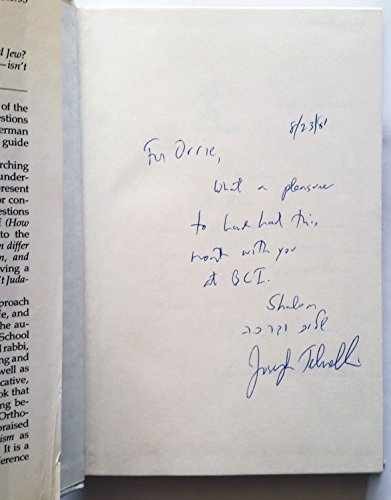 d Jew?
—isn't
of the
estions
erman
guide
arching
under-
present
or con-
estions
f (How
to the
n differ
n, and
ving a
't Juda-
proach
fe, and
the au-
School
rabbi,
ng and
well as
cative,
ok that
ng be-
Ortho-
praised
ism as
It is a
ference
8/23/81
For Orrie,
What a pleasure
to have had this
month with you
at BCI.
Shalom
שלום וברכה
Joseph Telushkin